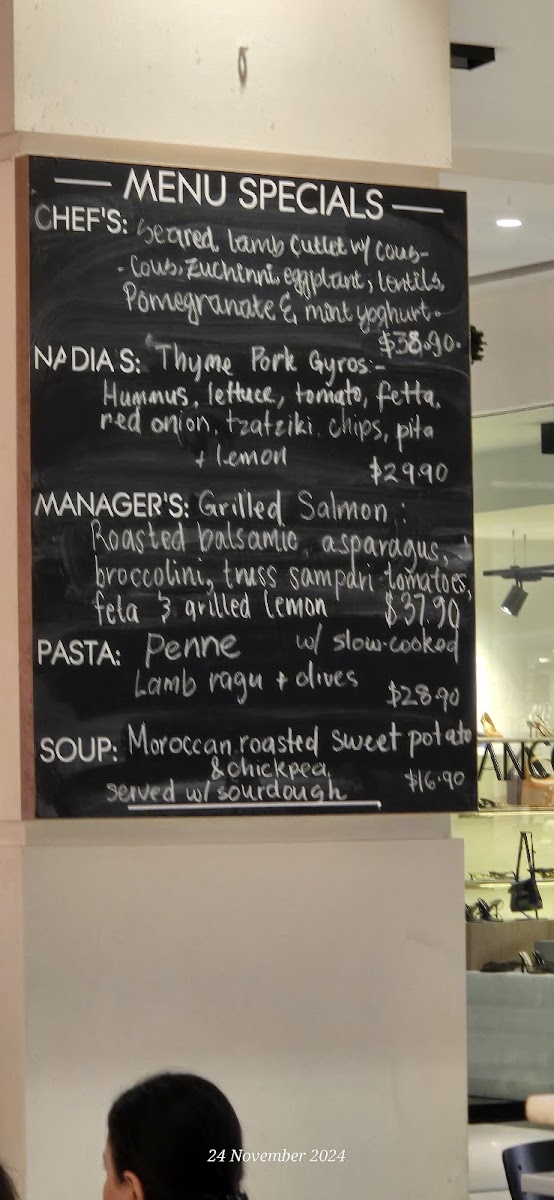 MENU SPECIALS
CHEF'S: Seared lamb cutlet w/ cous-
-cous, Zuchinni, eggplant, lentils,
Pomegranate & mint yoghurt.
$38.90.
NADIA'S: Thyme Pork Gyros:-
Hummus, lettuce, tomato, fetta,
red onion, tzatziki, chips, pita
+ lemon
$29.90
MANAGER'S: Grilled Salmon:
Roasted balsamic asparagus,
broccolini, truss sampari tomatoes,
feta & grilled lemon $37.90
PASTA: Penne w/ slow-cooked
Lamb ragu + olives
$28.90
SOUP: Moroccan roasted sweet potato
& chickpea
served w/ sourdough
$16.90
24 November 2024